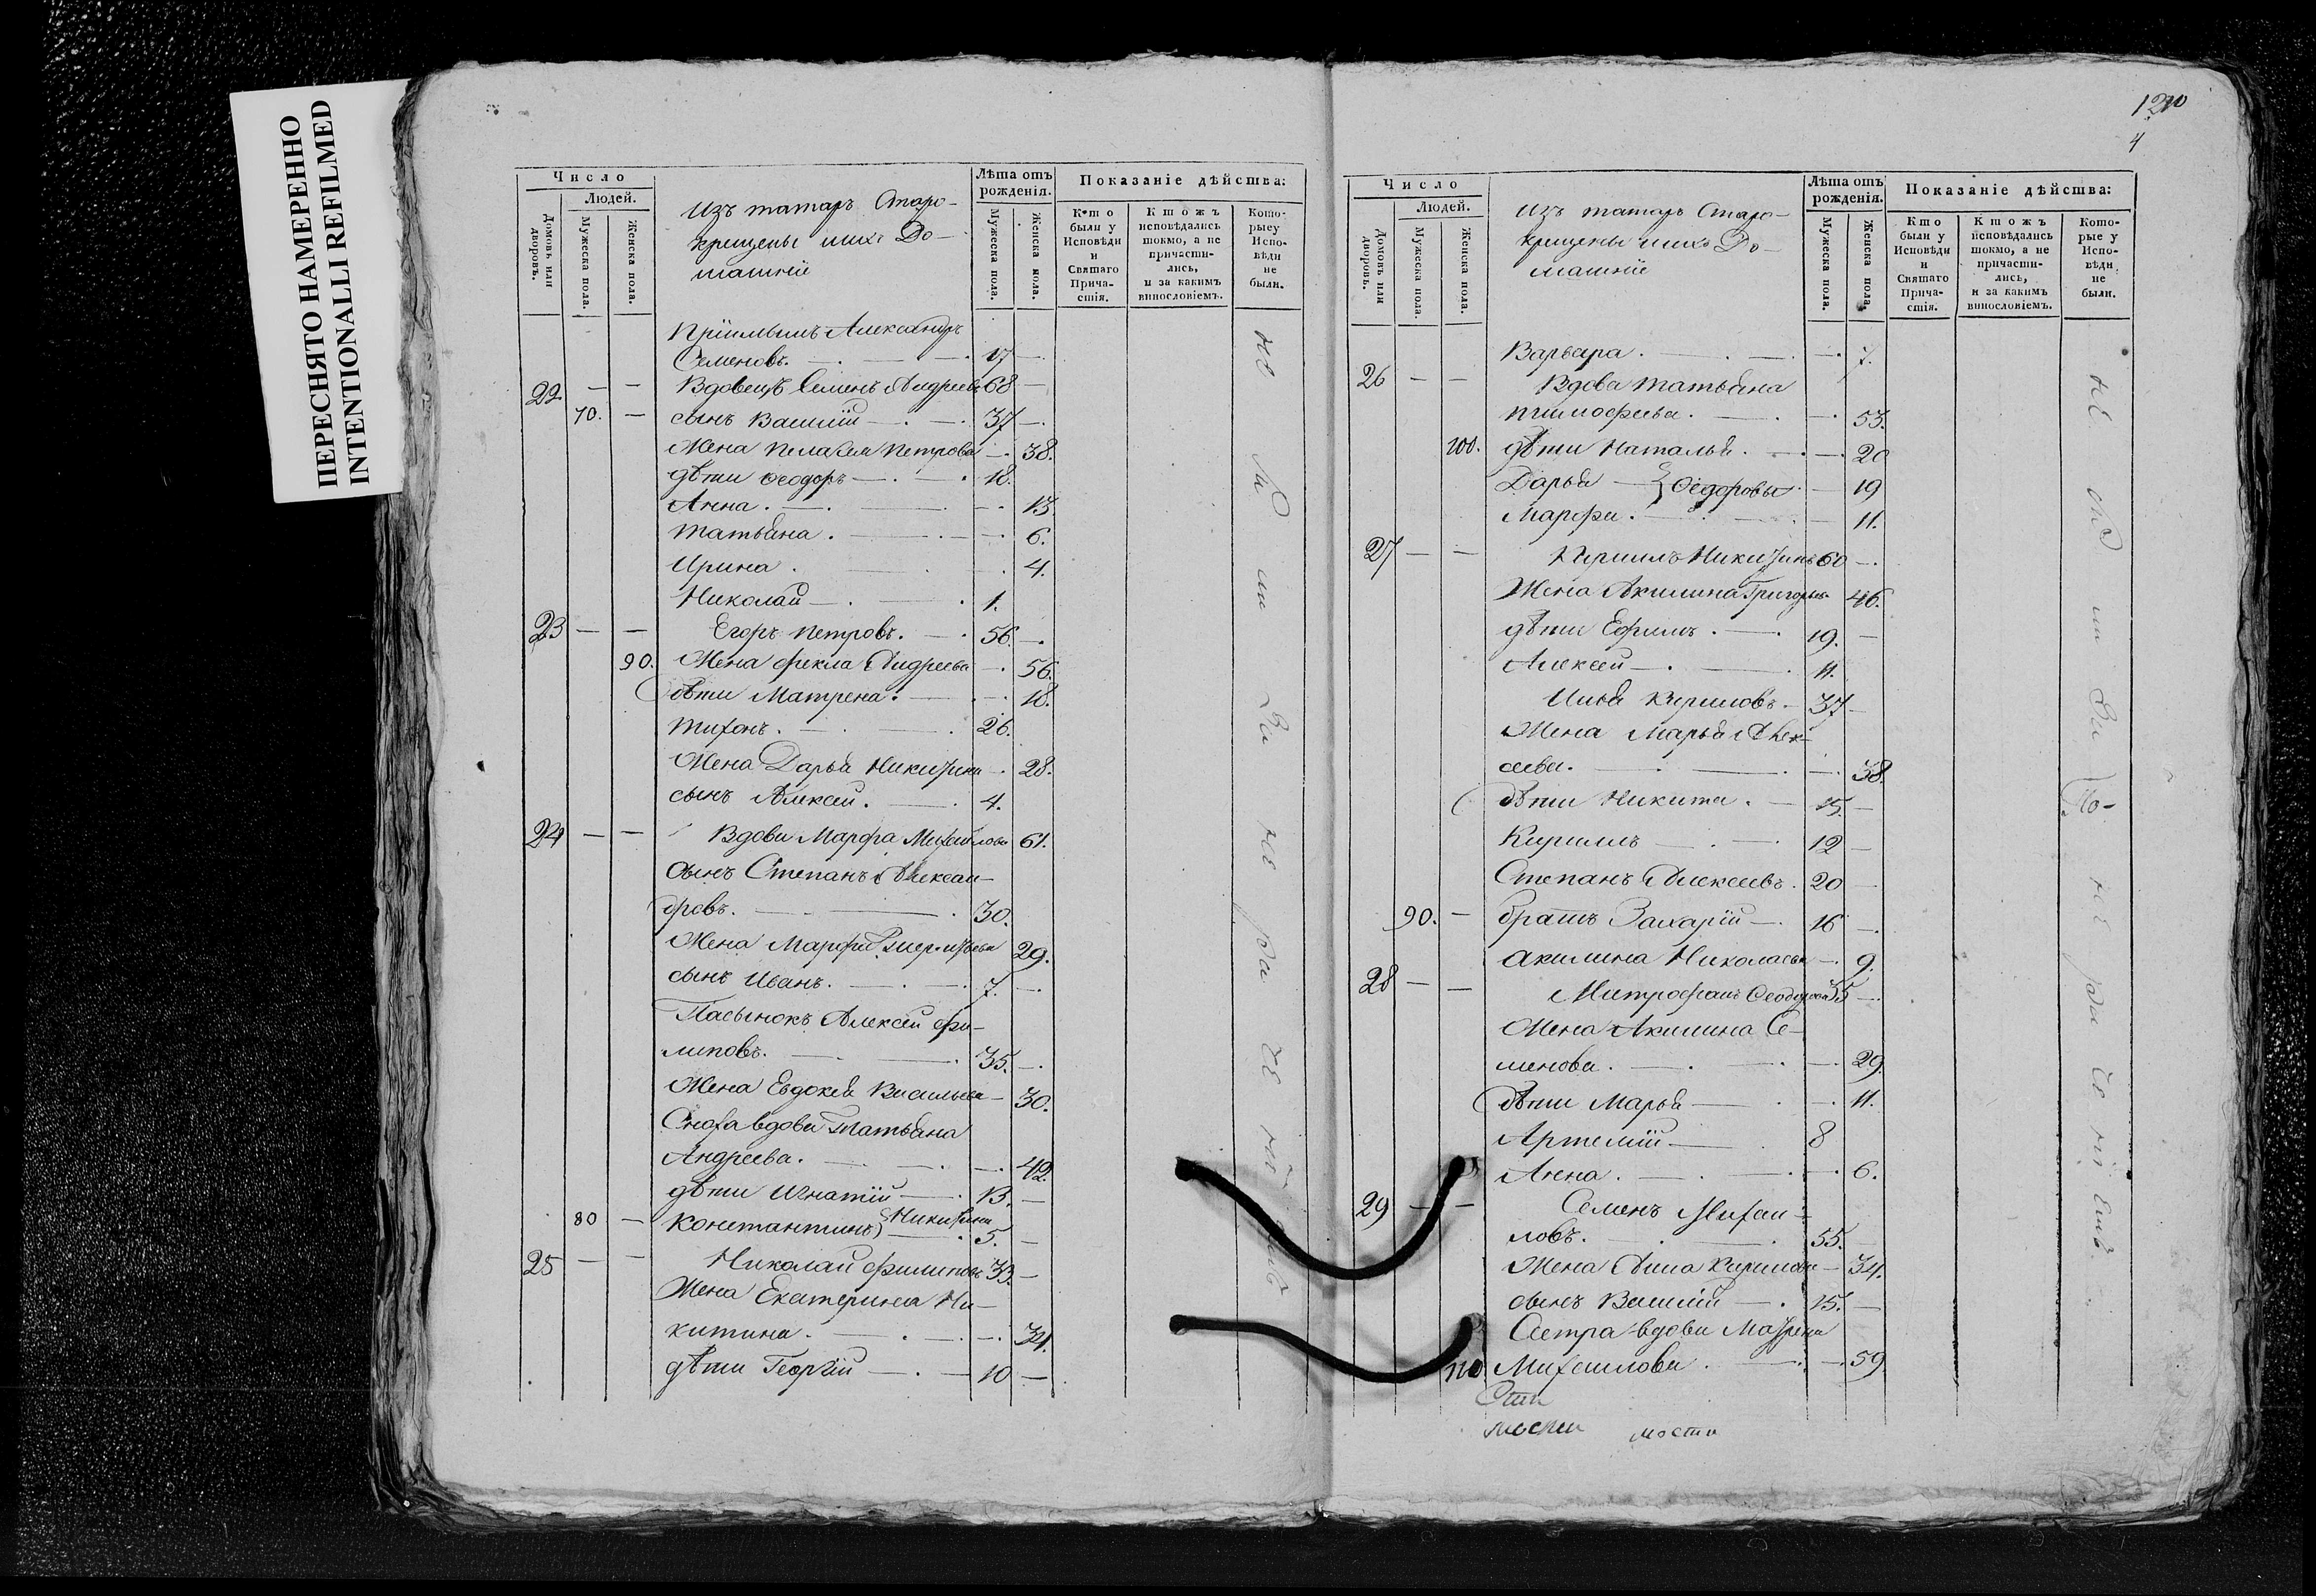 ПЕРЕСНЯТО НАМЕРЕННО
INTENTIONALLI REFILMED
Число
Людей.
Домовъ или дворовъ.
Мужеска пола.
Женска пола.
Изъ татаръ Старо-
крещены ихъ До-
машніе
Лѣта отъ рожденія.
Мужеска пола.
Женска пола.
Показаніе дѣйства:
Кто были у Исповѣди и Святаго Прича-стія.
Ктожъ исповѣдались токмо, а не причасти-лись, и за какимъ винословіемъ.
Кото-рые у Испо-вѣди не были.
Пріимышъ Александръ
Семеновъ. 17
22 Вдовецъ Семенъ Андреевъ 68
70. сынъ Василій 37
Жена Пелагея Петрова 38.
дѣти Ѳеодоръ 18.
Анна. 13.
Татьяна. 6.
Ирина. 4.
Николай 1.
23 Егоръ Петровъ. 56.
90. Жена Фекла Андреева 56.
дѣти Матрена. 18.
Тихонъ. 26.
Жена Дарья Никитина 28.
сынъ Алексей. 4.
24 Вдова Марфа Михайлова 61.
сынъ Степанъ Алексан-
дровъ. 30.
Жена Марфа 29.
сынъ Иванъ. 7.
Пасынокъ Алексей Фи-
липовъ. 35.
Жена Евдокея Васильева 30.
Сноха вдова Татьяна
Андреева. 42.
дѣти Игнатій 13.
80 Константинъ Никитины 5.
25 Николай Филиповъ 33.
Жена Екатерина Ни-
китина. 34.
дѣти Георгій 10
120
4
Число
Людей.
Домовъ или дворовъ.
Мужеска пола.
Женска пола.
Изъ татаръ Старо-
крещены ихъ До-
машніе
Лѣта отъ рожденія.
Мужеска пола.
Женска пола.
Показаніе дѣйства:
Кто были у Исповѣди и Святаго Прича-стія.
Ктожъ исповѣдались токмо, а не причасти-лись, и за какимъ винословіемъ.
Кото-рые у Испо-вѣди не были.
Варвара. 7.
26 Вдова Татьяна
Тимофеева. 53.
100. дѣти Наталья. 20
Дарья Ѳедоровы 19
Марфа. 11.
27 Кирилъ Никитинъ 60
Жена Акилина Григорьев. 46.
дѣти Ефимъ. 19.
Алексей 11.
Илья Кириловъ. 37
Жена Марья Алек-
сеева. 38.
дѣти Никита. 15.
Кирилъ 12
Степанъ Алексеевъ. 20
90. братъ Захарій 16
Акилина Николаева 9.
28 Митрофанъ Ѳеодоровъ 35
Жена Акилина Се-
менова. 29.
дѣти Марья 11.
Артемій 8
Анна. 6.
29 Семенъ Михаи-
ловъ. 55.
Жена Анна Кирилова 34.
сынъ Василій 15.
Сестра вдова Матрена
110 Михаилова. 59
мости